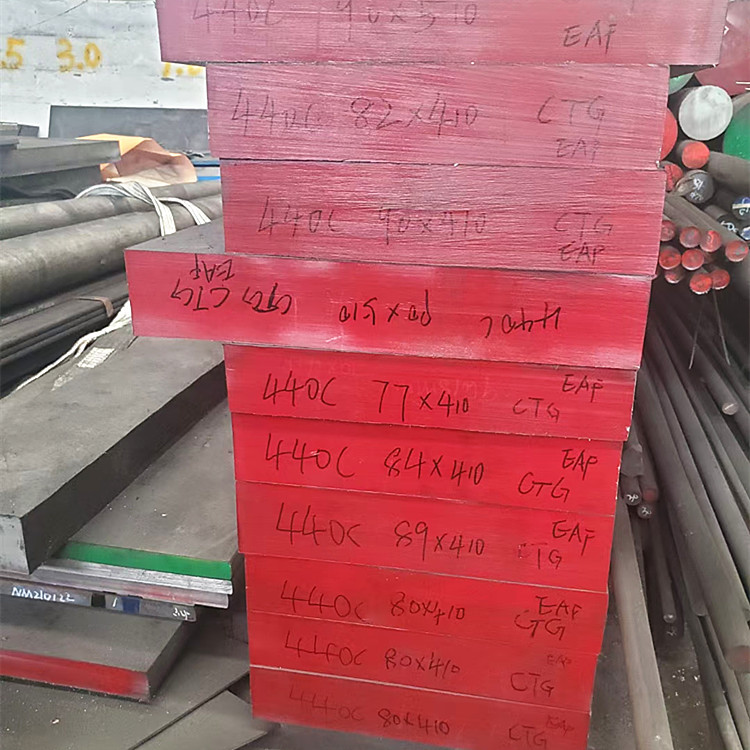 .5 3.0
440C 90x510
EAF
440C 82x410 CTG
EAF
440C 90x410 CTG
EAF
440C 90x510 CTG CTG
EAF
440C 77x410 EAF
CTG
440C 84x410 EAF
CTG
440C 89x410 EAF
CTG
440C 80x410 EAF
CTG
440C 80x410 EAF
CTG
440C 80x410 EAF
CTG